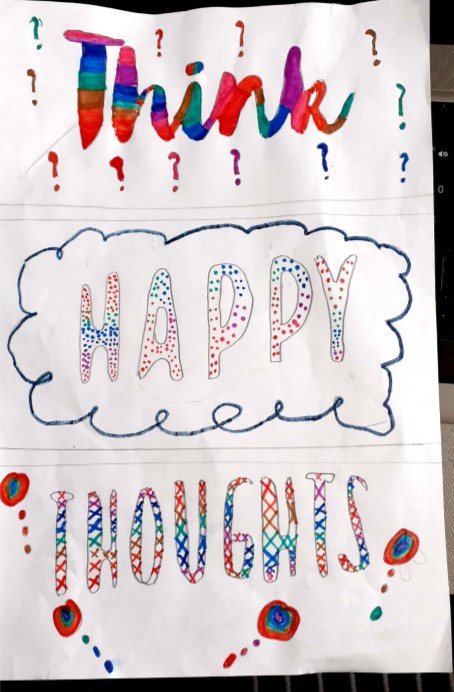 ? ? ? ?
Think
? ?
? ? ? ? ? ?
HAPPY
THOUGHTS